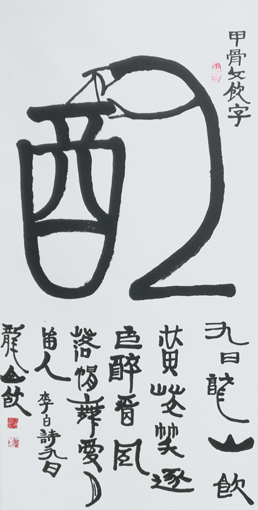 甲骨文飲字
飲
九日龍山飲
黄花笑逐
臣醉看風
落帽舞愛月
留人 李白詩九日
龍山飲